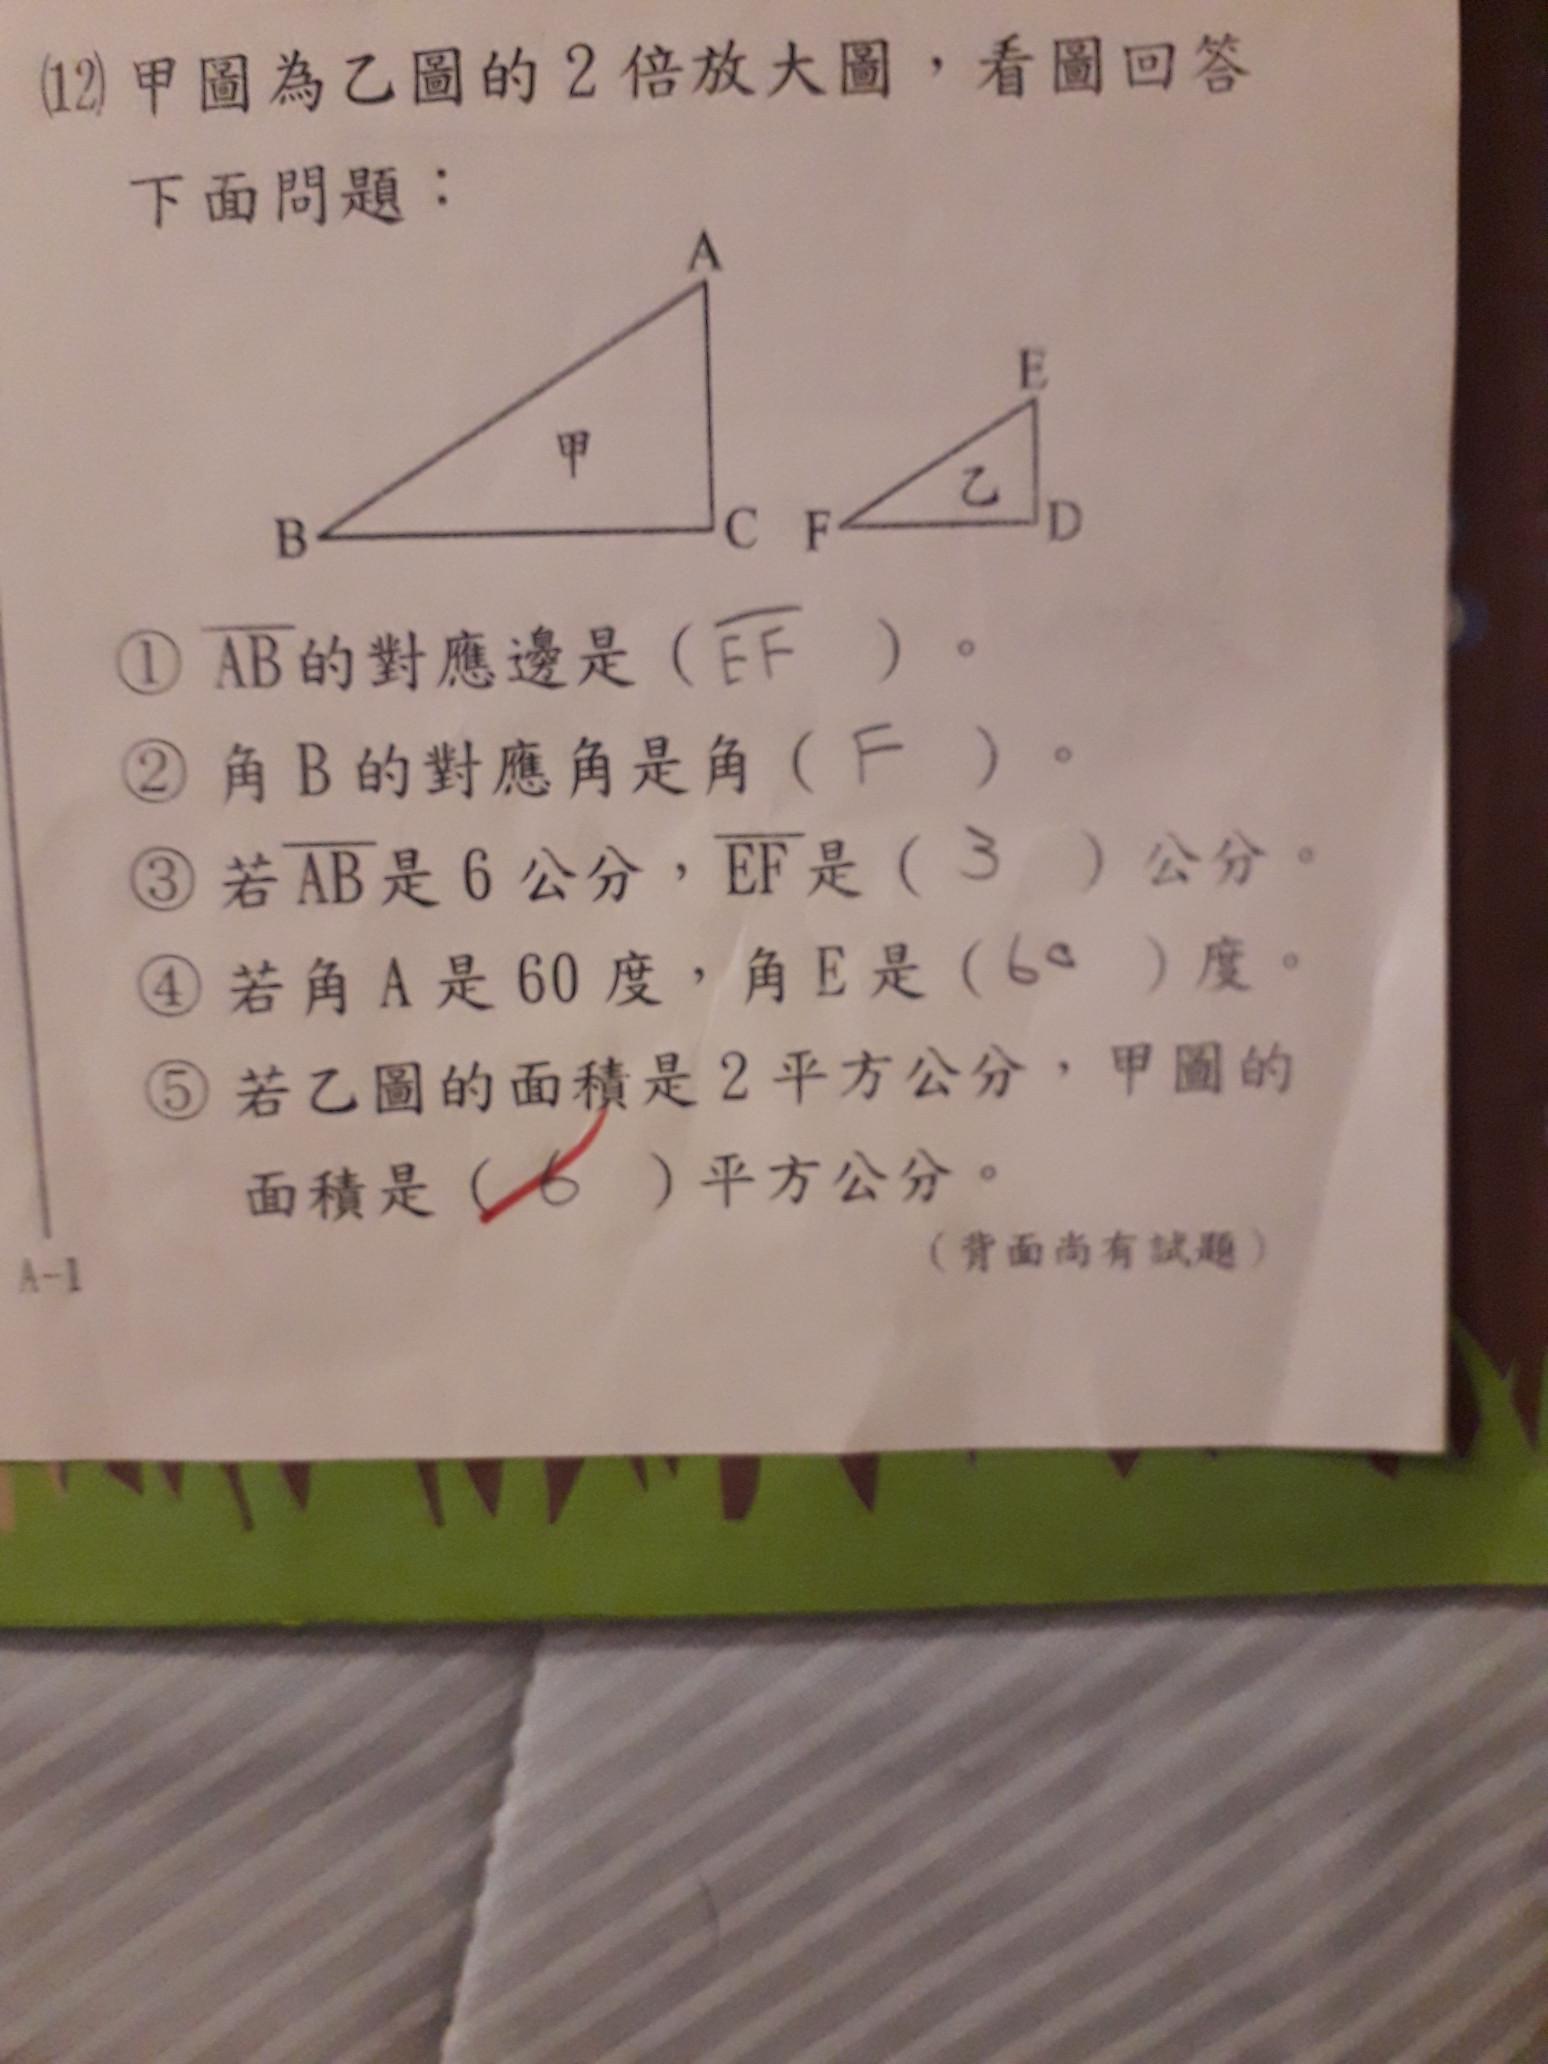 (12) 甲圖為乙圖的2倍放大圖，看圖回答
下面問題：
A
E
甲
乙
B
C
F
D
① AB的對應邊是（EF）。
② 角B的對應角是角（F）。
③ 若AB是6公分，EF是（3）公分。
④ 若角A是60度，角E是（60）度。
⑤ 若乙圖的面積是2平方公分，甲圖的
面積是（6）平方公分。
（背面尚有試題）
A-1